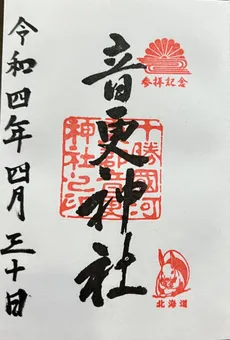 参拝記念
音更神社
十勝國河
神社之印
北海道
令和四年四月三十日